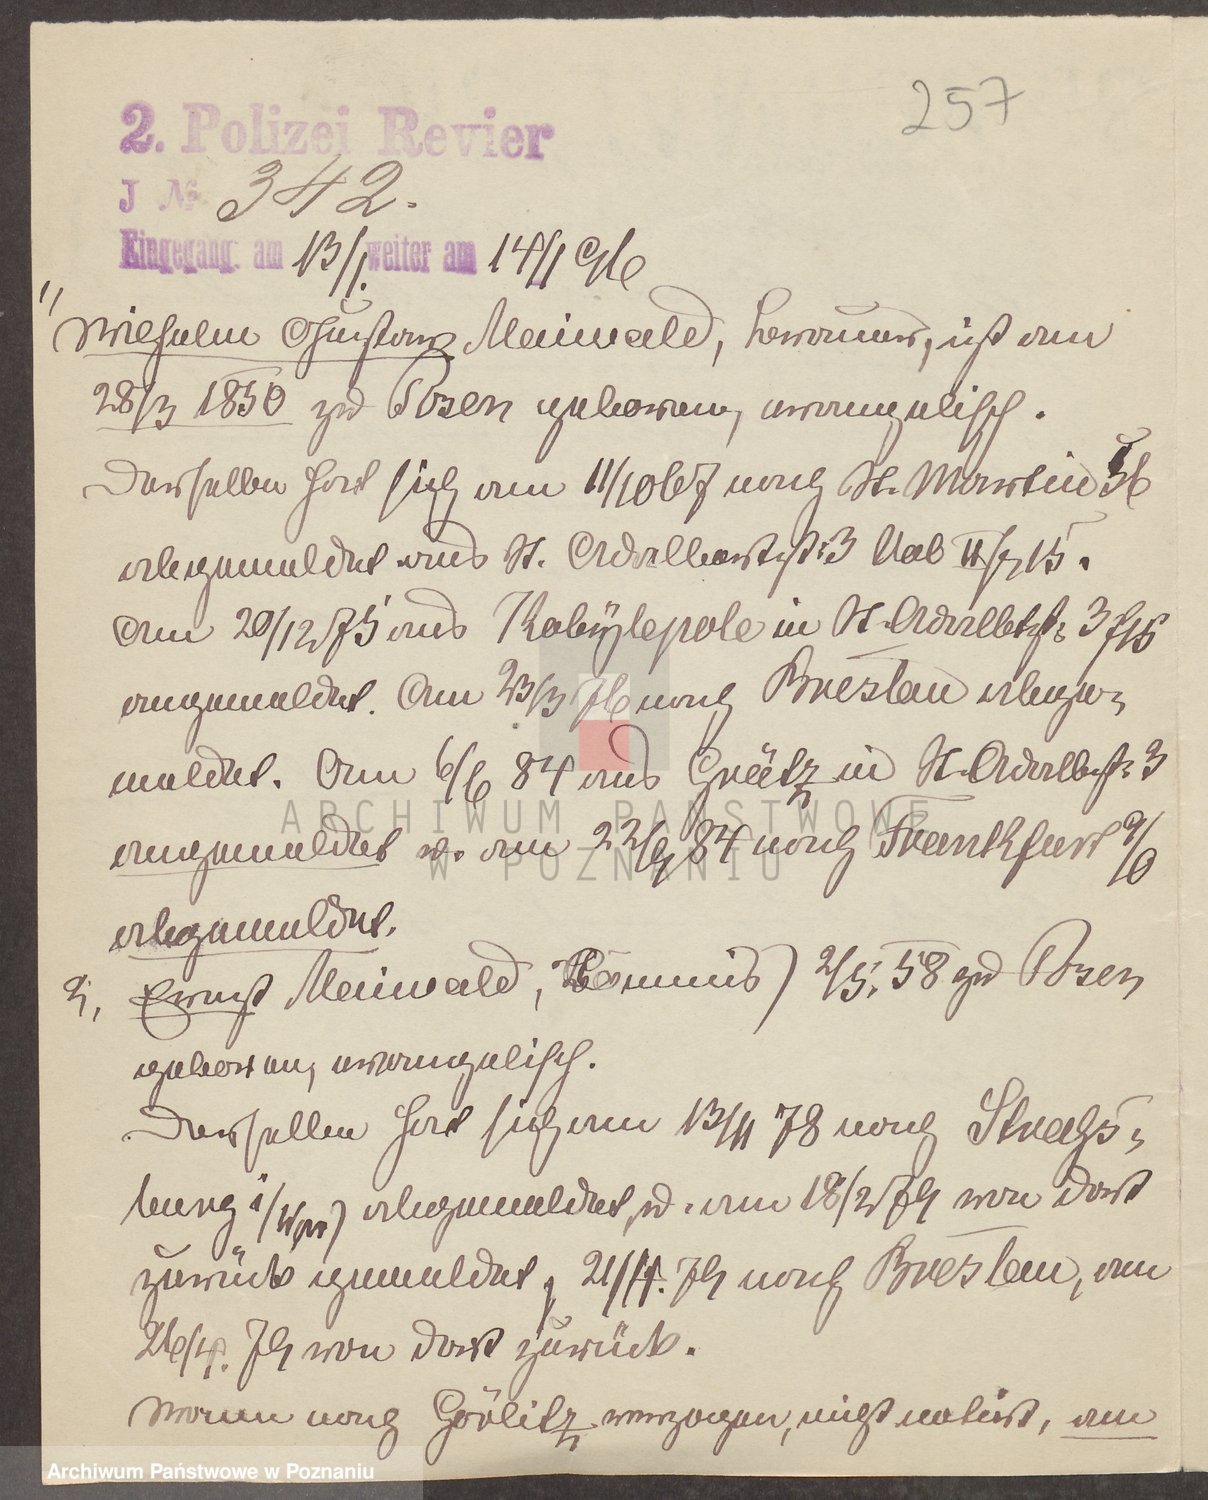 257
2. Polizei Revier
J № 342.
Eingegang. am 13/1. weiter am 14/1 96
1, Wilhelm Gustav Meiwald, ist am
28/3 1850 zu Posen geboren, evangelisch.
Derselbe hat sich am 11/10 67 nach St. Martin 56
abgemeldet aus St. Adalbertstr: 3
Am 20/12 75 aus Kobylepole in St. Adalbstr: 3
angemeldet. Am 23/3 76 nach Breslau abge-
meldet. Am 6/6 84 aus Grätz in St. Adalbstr: 3
angemeldet u. am 22/9 84 nach Frankfurt a/O
abgemeldet.
2, Ernst Meiwald, Commis, 2/5. 58 zu Posen
geboren, evangelisch.
Derselbe hat sich am 13/11 78 nach Strass-
burg i/Wpr abgemeldet, u. am 18/2 79 von dort
zurück gemeldet, 21/4. 79 nach Breslau, am
26/4. 79 von dort zurück.
Wann nach Görlitz verzogen, nicht notirt, am
ARCHIWUM PAŃSTWOWE
W POZNANIU
Archiwum Państwowe w Poznaniu